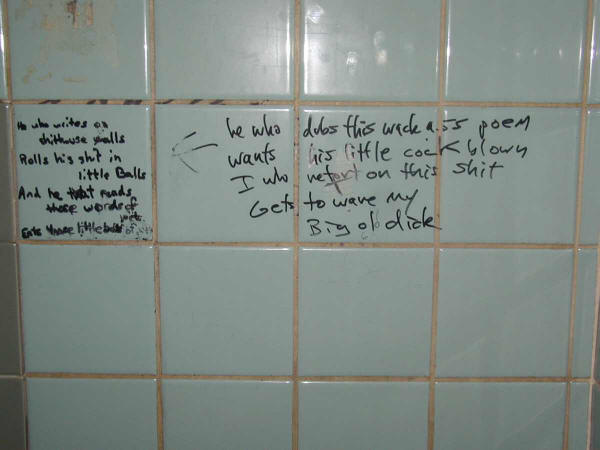 He who writes on
shithouse walls
Rolls his shit in
little Balls
And he that reads
those words of
Eats those little balls of
he who dubs this wack ass poem
wants his little cock blown
I who retort on this shit
Gets to wave my
Big ol dick